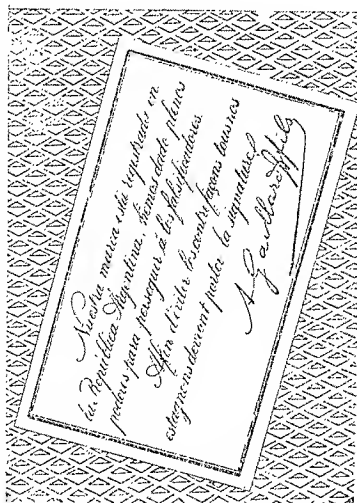 Nuestra marca está registrada en
la República Argentina. Hemos dado plenos
poderes para perseguir á los falsificadores.
Afin d'éviter les contrefaçons tous nos
devront porter la signature
A Gaillard